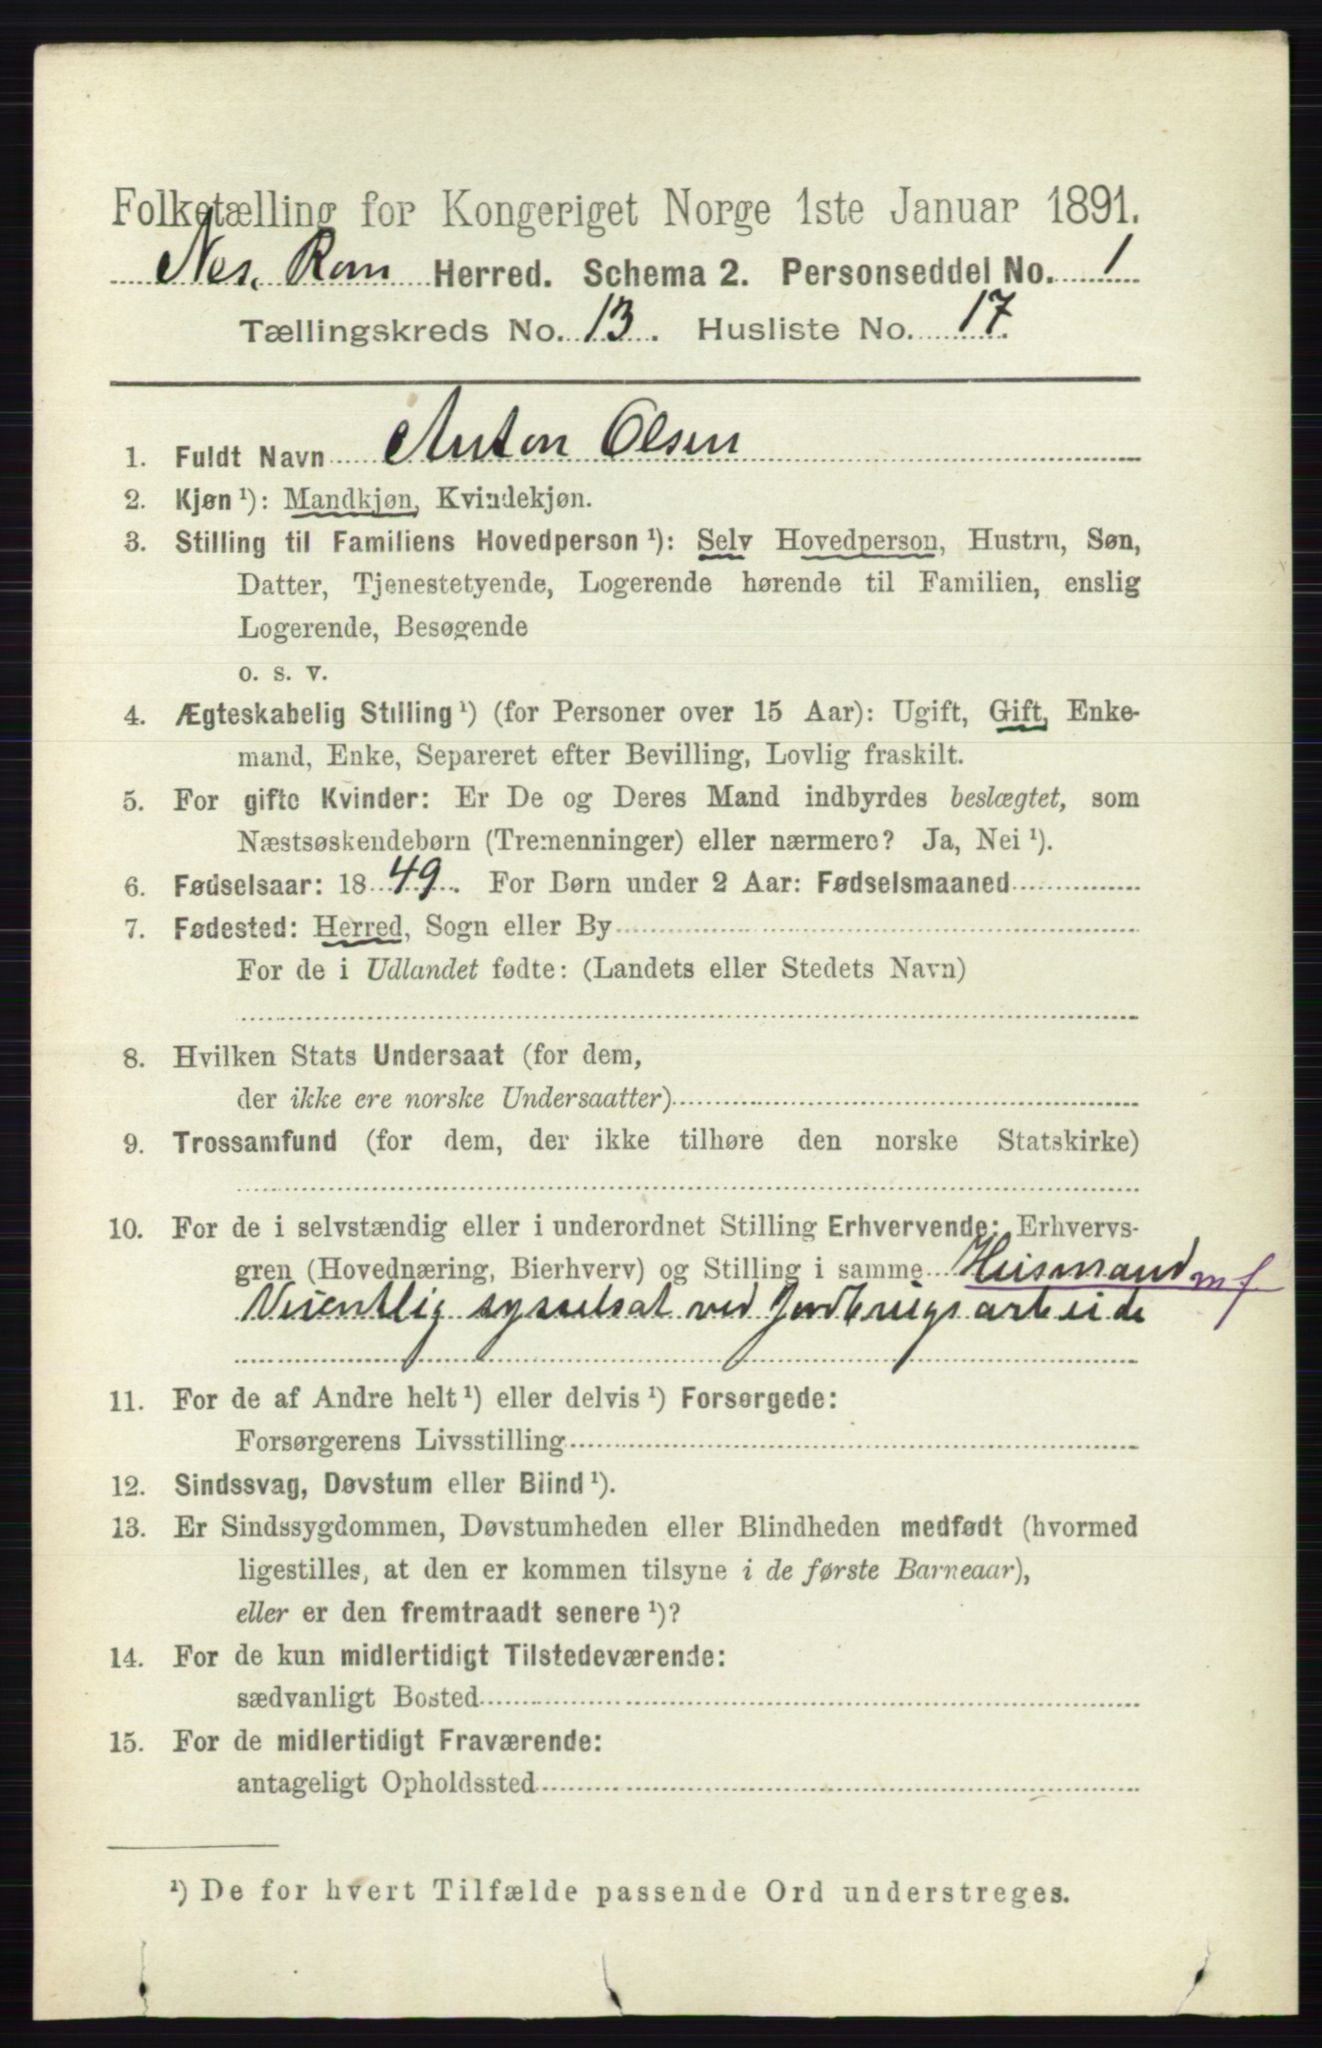 Folketælling for Kongeriget Norge 1ste Januar 1891.
Nes. Rom Herred. Schema 2. Personseddel No. 1
Tællingskreds No. 13. Husliste No. 17.
1. Fuldt Navn Anton Olsen
2. Kjøn ¹): Mandkjøn, Kvindekjøn.
3. Stilling til Familiens Hovedperson ¹): Selv Hovedperson, Hustru, Søn,
Datter, Tjenestetyende, Logerende hørende til Familien, enslig
Logerende, Besøgende
o. s. v.
4. Ægteskabelig Stilling ¹) (for Personer over 15 Aar): Ugift, Gift, Enke-
mand, Enke, Separeret efter Bevilling, Lovlig fraskilt.
5. For gifte Kvinder: Er De og Deres Mand indbyrdes beslægtet, som
Næstsøskendebørn (Tremenninger) eller nærmere? Ja, Nei ¹).
6. Fødselsaar: 1849. For Børn under 2 Aar: Fødselsmaaned
7. Fødested: Herred, Sogn eller By
For de i Udlandet fødte: (Landets eller Stedets Navn)
8. Hvilken Stats Undersaat (for dem,
der ikke ere norske Undersaatter)
9. Trossamfund (for dem, der ikke tilhøre den norske Statskirke)
10. For de i selvstændig eller i underordnet Stilling Erhvervende: Erhvervs-
gren (Hovednæring, Bierhverv) og Stilling i samme Husmand m f
Vesentlig sysselsat ved Jordbrugsarbeide
11. For de af Andre helt ¹) eller delvis ¹) Forsørgede:
Forsørgerens Livsstilling
12. Sindssvag, Døvstum eller Blind ¹).
13. Er Sindssygdommen, Døvstumheden eller Blindheden medfødt (hvormed
ligestilles, at den er kommen tilsyne i de første Barneaar),
eller er den fremtraadt senere ¹)?
14. For de kun midlertidigt Tilstedeværende:
sædvanligt Bosted
15. For de midlertidigt Fraværende:
antageligt Opholdssted
¹) De for hvert Tilfælde passende Ord understreges.